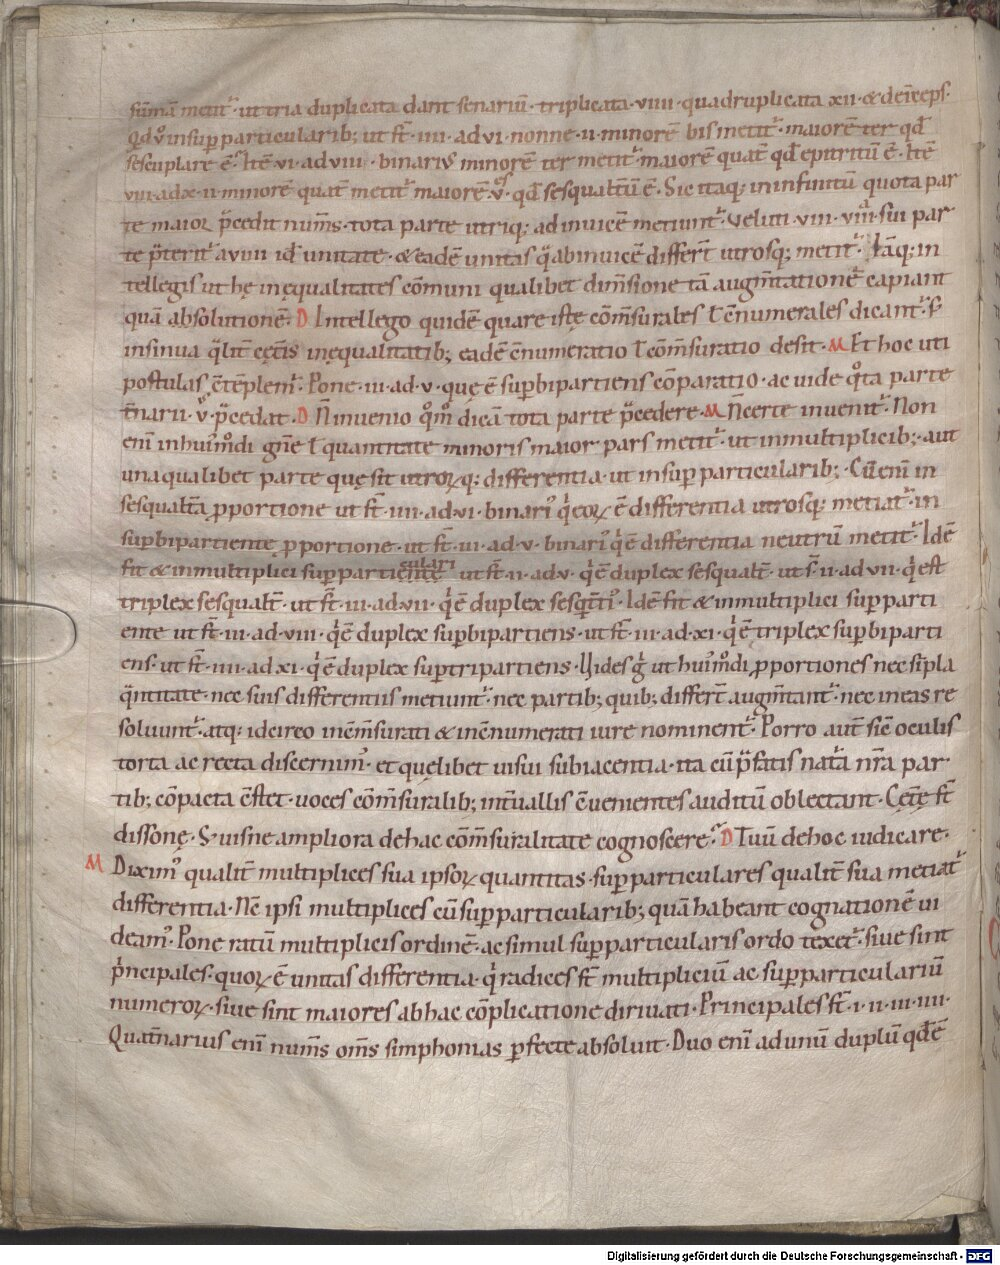 sūmā metit᷑· ut tria duplicata dant senariū· triplicata· viiii· quadruplicata xii· & deīceps·
Qd v̊ in sup particularib; ut st̄· iiii· ad vi· nonne· ii· minorē bis metit᷑· maiorē ter qd̄
sescuplare ē· Itē vi· ad viii· binari᷒ minorē ter metit᷑ maiorē quat̄ qd̄ epitritū ē· Itē
viii· ad x· ii· minorē quat̄ metit᷑ maiorē· v̊· qd̄ sesquat̄tū ē· Sic itaq; in infinitū quota par
te maior p̄cedit num̄s· tota parte utriq; ad invicē metiunt᷑· veluti· viii· viiii· sui par
te p̄terit᷑ a viiii id ē unitate· & eadē unitas q̄ ab invicē differt̄ utrosq; metit᷑· Itaq; in
tellegis ut hę inęqualitates cōmuni qualibet dim̄sione tā augm̄tationē capiant
quā absolutionē· D Intellego quidē quare istę cōm̄surales ł c̄numerales dicant᷑· S;
insinua q̄lit̄ cęt̄is inęqualitatib; eadē c̄numeratio ł cōm̄suratio desit· M Et hoc uti
postulas c̄tēplem᷑· Pone· iii· ad· v· quę ē sup bipartiens cōparatio· ac vide q̊ta parte
t̄narii· v̊· p̄cedat· D N̄ invenio q̊m̊ dicā tota parte p̄cedere· M N̄ certe invenit᷑· Non
enī in hui᷒m̊di gn̄e ł quantitate minoris maior pars metit᷑· ut in multiplicib;· aut
una qualibet parte quę sit utroꝝq; differentia· ut in sup particularib;· Cū enī in
sesqualt̄a ꝓportione ut st̄· iiii· ad· vi· binari᷒ q̇ eoꝝ ē differentia utrosq; metiat᷑· in
sup bipartiente ꝓportione· ut st̄· iii· ad· v· binari᷒ q̇ ē differentia neutrū metit᷑· Idē
fit & in multiplici sup partiente culari ut st̄· ii· ad· v· q̇ ē duplex sesqualt̄· ut s̄t ii· ad· vii· q̇ est
triplex sesqualt̄· ut st̄· iii· ad· vii· q̇ ē duplex sesq̇t̄ti᷒· Idē fit & in multiplici sup parti
ente ut st̄· iii· ad· viii· q̇ ē duplex sup bipartiens· ut st̄· iii· ad· xi· q̇ ē triplex sup biparti
ens· ut st̄· iiii· ad xi· q̇ ē duplex sup tripartiens· Vides g̊ ut hui᷒m̊di ꝓportiones nec sīpla
q̄ntitate· nec suis differentiis metiunt᷑· nec partib; quib; differt̄ augm̄tant᷑· nec in eas re
soluunt᷑· atq; idcirco incōm̄surati & inc̄numerati iure nominent᷑· Porro aut̄ sic̄ oculis
torta ac recta discernim᷒· et quęlibet visui subiacentia· ita cū p̄fatis nat̄a nr̄a par
tib; cōpacta c̄stet· voces cōm̄suralib; int̄uallis c̄venientes auditū oblectant· Cęt̄ę st̄
dissonę· S; visne ampliora de hac cōm̄suralitate cognoscere· D Tuū de hoc iudicare·
M Dixim᷒ qualit̄ multiplices sua ipsoꝝ quantitas· sup particulares qualit̄ sua metiat᷑
differentia· N̄c ipsi multiplices cū sup particularib; quā habeant cognationē vi
deam᷒· Pone ratū multiplicis ordinē· ac simul sup particularis ordo texet᷑· sive sint
ṗncipales· quoꝝ ē unitas differentia· q̇ radices st̄ multipliciū ac sup particulariū
numeroꝝ· sive sint maiores ab hac cōplicatione dirivati· Principales st̄· i· ii· iii· iiii·
Quat̄narius enī num̄s om̄s simphonias ꝑfecte absoluit· Duo enī ad unū duplū qd̄ ē
Digitalisierung gefördert durch die Deutsche Forschungsgemeinschaft - DFG